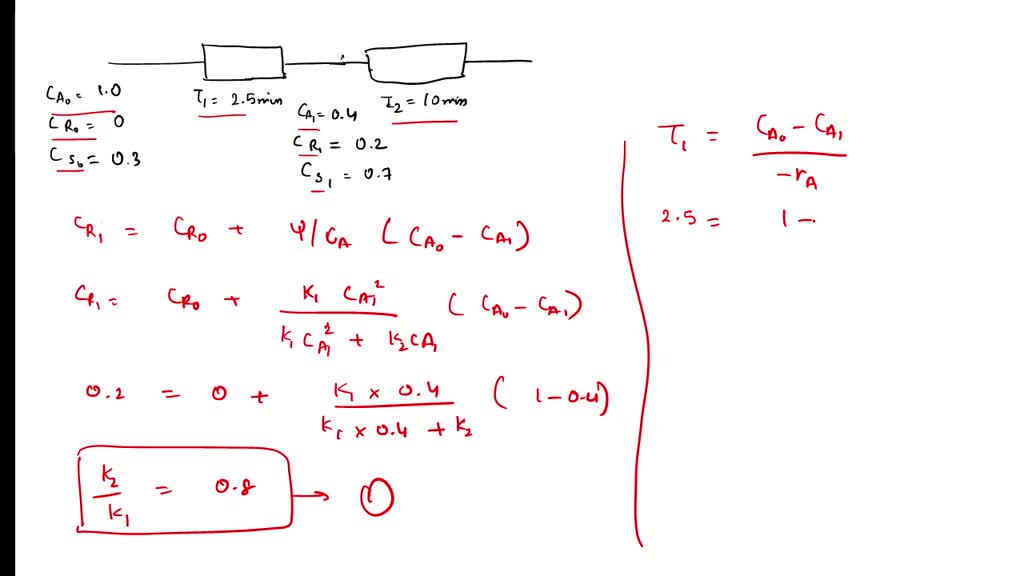 C_A₀ = 1.0
C_R₀ = 0
C_S₀ = 0.3
τ₁ = 2.5min
C_A₁ = 0.4
C_R₁ = 0.2
C_S₁ = 0.7
τ₂ = 10min
C_R₁ = C_R₀ + φ/C_A (C_A₀ - C_A₁)
C_R₁ = C_R₀ + K₁ C_A₁² / K₁ C_A₁² + K₂ C_A₁ (C_A₀ - C_A₁)
0.2 = 0 + K₁ × 0.4 / K₁ × 0.4 + K₂ (1 - 0.4)
K₂/K₁ = 0.8 → ①
τ₁ = C_A₀ - C_A₁ / -r_A
2.5 = 1 -